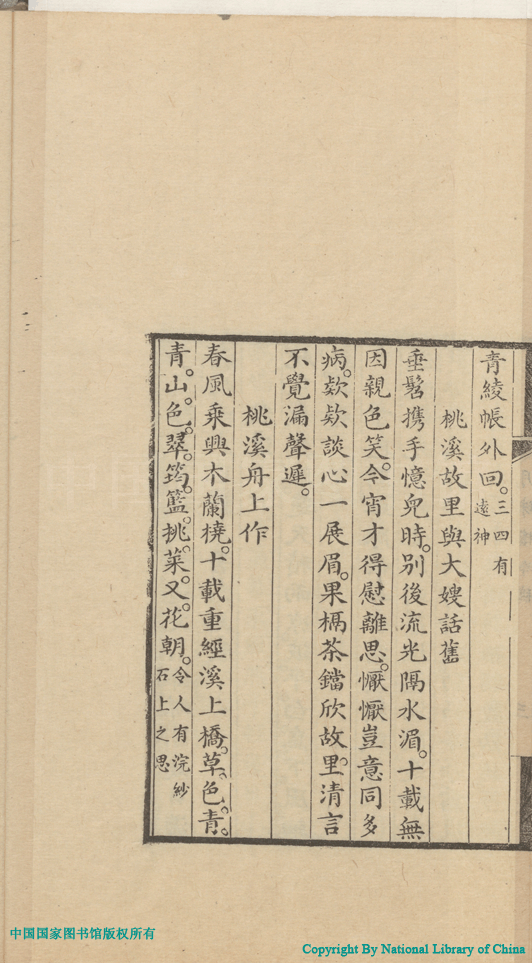 青綾帳外回。三四有遠神
桃溪故里與大嫂話舊
垂髫攜手憶兒時。別後流光隔水湄。十載無
因親色笑。今宵才得慰離思。懨懨豈意同多
病。欵欵談心一展眉。果槅茶鐺欣故里。清言
不覺漏聲遲。
桃溪舟上作
春風乘興木蘭橈。十載重經溪上橋。草。色。青。
青。山。色。翠。筠。籃。挑。菜。又。花。朝。令人有浣紗石上之思
中国国家图书馆版权所有
Copyright By National Library of China